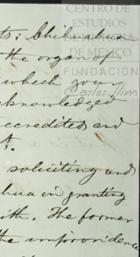 CENTRO DE
ESTUDIOS
DE MÉXICO
FUNDACIÓN
Carlos Slim
ts; Chihuahua
the organ of
which you
cknowledged
ccredited and
soliciting and
hua in granting
ith. The former
the improvidence